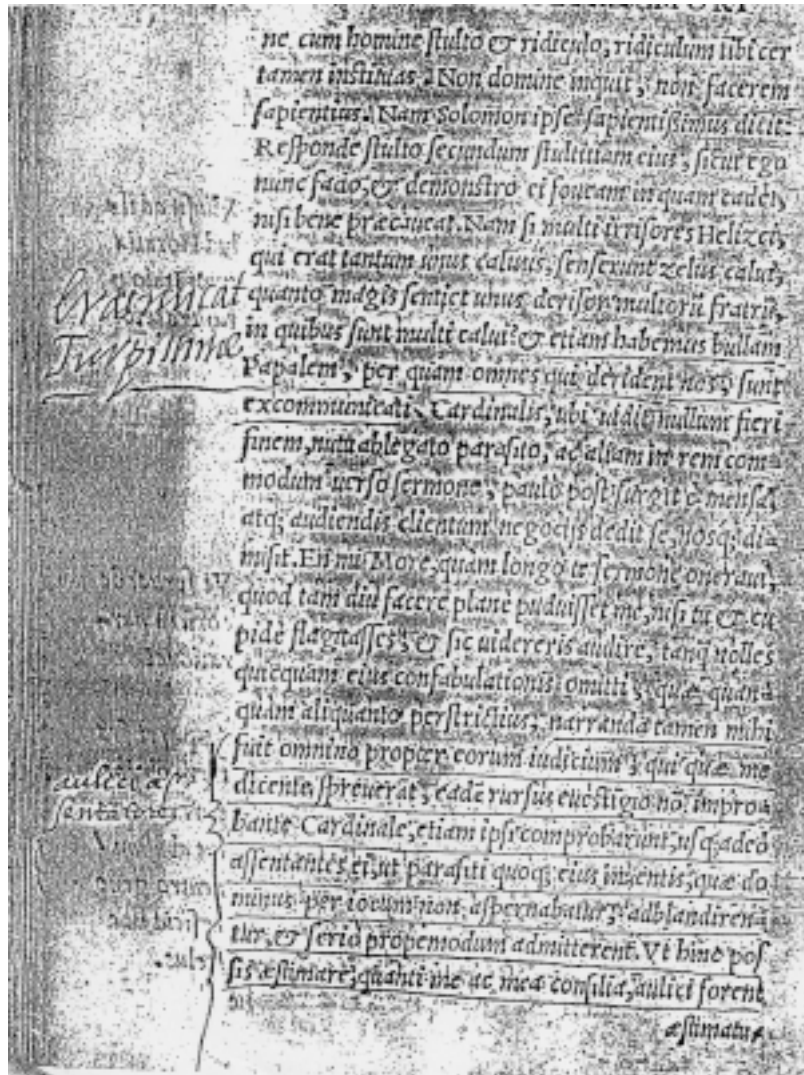 ne cum homine ſtulto & ridiculo, ridiculum tibi cer
tamen inſtituas. Non domine inquit, non facerem
ſapientius. Nam Solomon ipſe ſapientiſſimus dicit:
Reſponde ſtulto ſecundum ſtultitiam eius, ſicut ego
nunc facio, & demonſtro ei foueam in quam cadet,
niſi bene præcaueat. Nam ſi multi irriſores Helizei,
qui erat tantum unus caluus, ſenſerunt zelus calui,
quanto magis ſentiet unus deriſor multorũ fratrũ,
in quibus ſunt multi calui? & etiam habemus bullam
Papalem, per quam omnes qui derident nos, ſunt
excommunicati. Cardinalis, ubi uidit nullum fieri
finem, nutu ablegato paraſito, ac aliam in rem com-
modum uerſo ſermone, paulo poſt ſurgit è menſa,
atq; audiendis clientum negocijs dedit ſe, noſq; di-
miſit. En mi More, quàm longo te ſermone oneraui,
quod tam diu facere planè puduiſſet me, niſi tu & cu
pidè flagitaſſes, & ſic uidereris audire, tanq̃ nolles
quicquam eius confabulationis omitti, quæ quan-
quàm aliquanto perſtrictius, narranda tamen mihi
fuit omnino propter eorum iudicium, qui quæ me
dicente ſpreuerãt, eadẽ rurſus eueſtigio nõ impro-
bante Cardinale, etiam ipſi comprobarunt, uſq; adeò
aſſentantes ei, ut paraſiti quoq; eius inuentis, quæ do
minus per iocum non aſpernabatur, adblandiren-
tur, & ſerio propemodum admitterent. Vt hinc poſ
ſis æſtimare, quanti me ac mea conſilia, aulici forent
æſtimatu-
aulici aſ
ſentatores